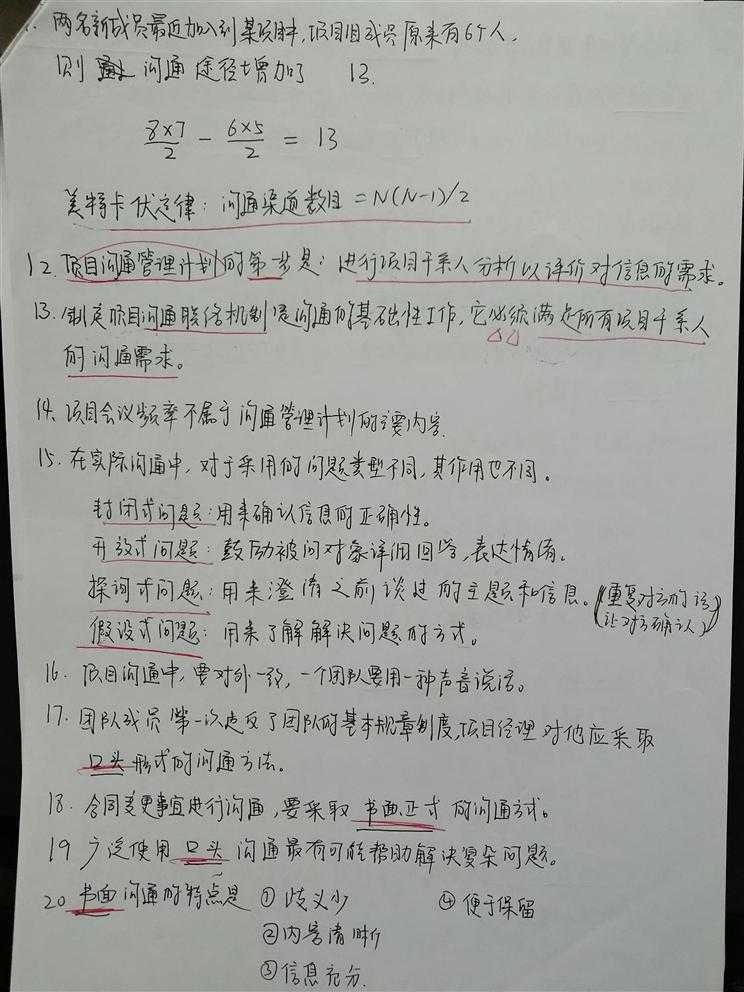 两名新成员最近加入到某项目中,项目团成员原来有6个人,
则 沟通途径增加了 13.
8×7/2 - 6×5/2 = 13
美特卡伏定律: 沟通渠道数目 = N(N-1)/2
12. 项目沟通管理计划的第一步是: 进行项目干系人分析以评价对信息的需求。
13. 制定项目沟通联络机制是沟通的基础性工作,它必须满足所有项目干系人
的沟通需求。
14. 项目会议频率不属于沟通管理计划的主要内容.
15. 在实际沟通中,对于采用的问题类型不同,其作用也不同。
封闭式问题: 用来确认信息的正确性。
开放式问题: 鼓励被问对象详细回答,表达情绪。
探询式问题: 用来澄清之前谈过的主题和信息。(重复对方的话
让对方确认)
假设式问题: 用来了解解决问题的方式。
16. 项目沟通中,要对外一致,一个团队要用一种声音说话。
17. 团队成员第一次违反了团队的基本规章制度,项目经理对他应采取
口头形式的沟通方法。
18. 合同变更事宜进行沟通,要采取 书面正式 的沟通方式。
19 广泛使用 口头 沟通最有可能帮助解决复杂问题。
20 书面沟通的特点是 ① 歧义少 ④ 便于保留
② 内容清晰
③ 信息充分.